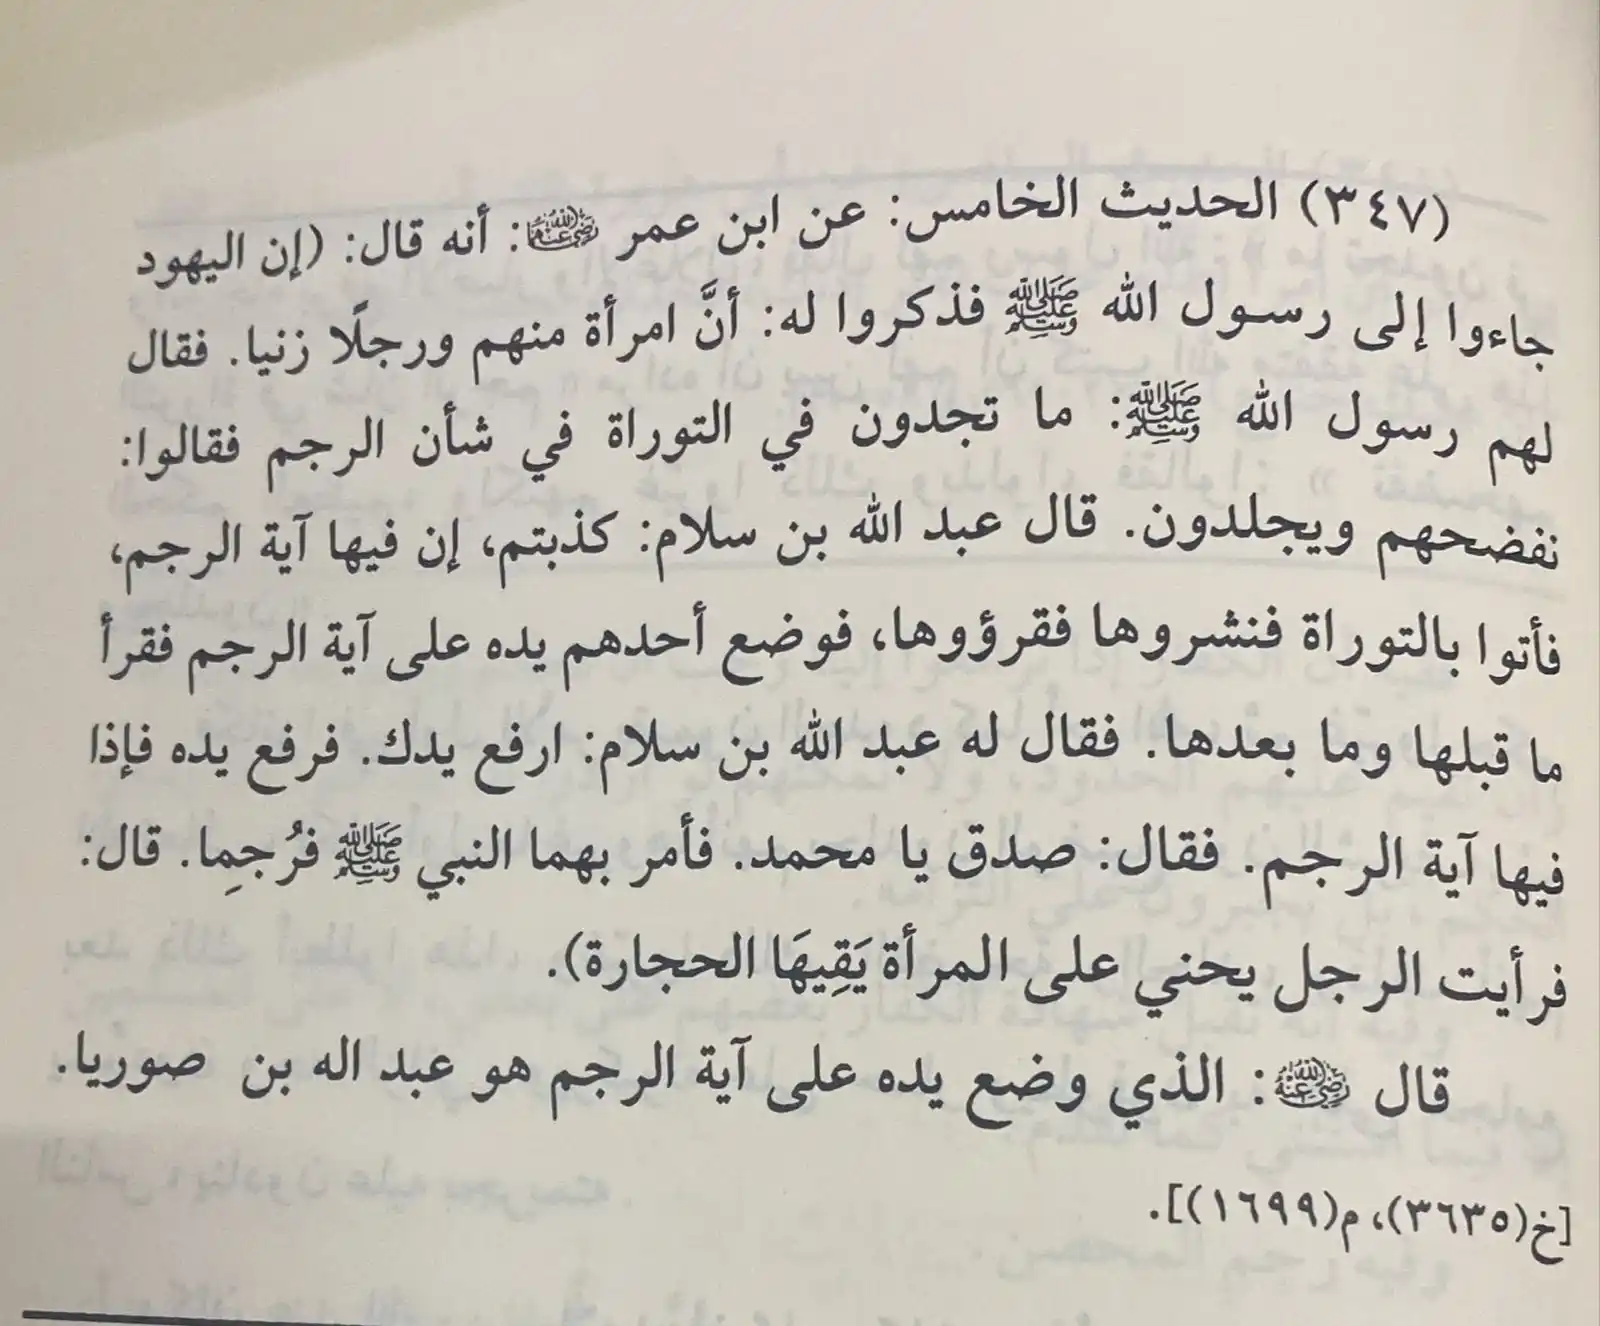 (٣٤٧) الحديث الخامس: عن ابن عمر ﵁: أنه قال: (إن اليهود
جاءوا إلى رسول الله ﷺ فذكروا له: أنَّ امرأة منهم ورجلًا زنيا. فقال
لهم رسول الله ﷺ: ما تجدون في التوراة في شأن الرجم فقالوا:
نفضحهم ويجلدون. قال عبد الله بن سلام: كذبتم، إن فيها آية الرجم،
فأتوا بالتوراة فنشروها فقرؤوها، فوضع أحدهم يده على آية الرجم فقرأ
ما قبلها وما بعدها. فقال له عبد الله بن سلام: ارفع يدك. فرفع يده فإذا
فيها آية الرجم. فقال: صدق يا محمد. فأمر بهما النبي ﷺ فرُجمِا. قال:
فرأيت الرجل يحني على المرأة يَقِيهَا الحجارة).
قال ﵁: الذي وضع يده على آية الرجم هو عبد اله بن صوريا.
[خ(٣٦٣٥)، م(١٦٩٩)].